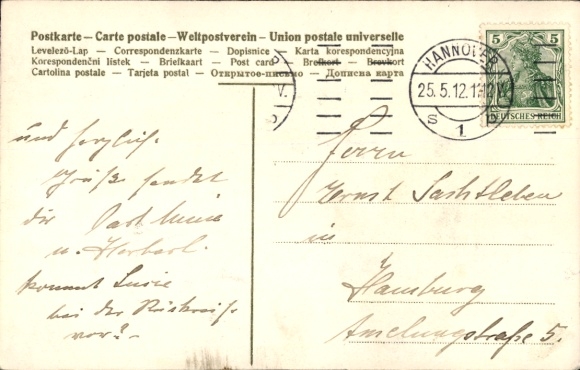 Postkarte – Carte postale – Weltpostverein – Union postale universelle
Levelező-Lap — Correspondenzkarte — Dopisnice — Karta korespondencyjna
Korespondenční listek — Briefkaart — Post card — Brefkort — Brevkort
Cartolina postale — Tarjeta postal — Открытое письмо — Дописна карта
HANNOVER
25.5.12.11-12V.
S 1
5 5
DEUTSCHES REICH
und herzliche
Grüße sendet
dir
u. Herbert.
kommt
bei der Rückreise
vor?
Herrn
Ernst Sachtleben
in
Hamburg
Amelungstraße 5.